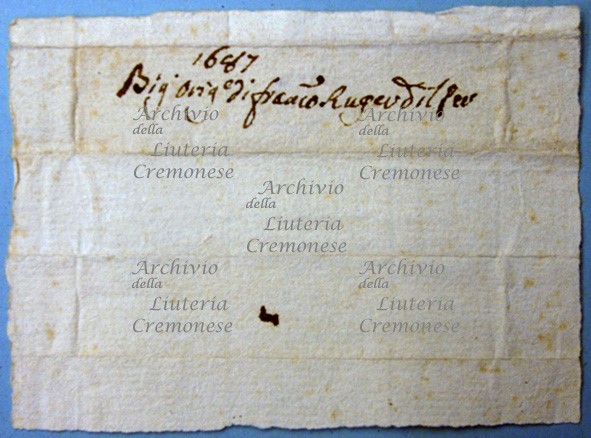 1687
Big.to Orig.e di franc.o Ruger d.il Per
Archivio
della
Liuteria
Cremonese
Archivio
della
Liuteria
Cremonese
Archivio
della
Liuteria
Cremonese
Archivio
della
Liuteria
Cremonese
Archivio
della
Liuteria
Cremonese